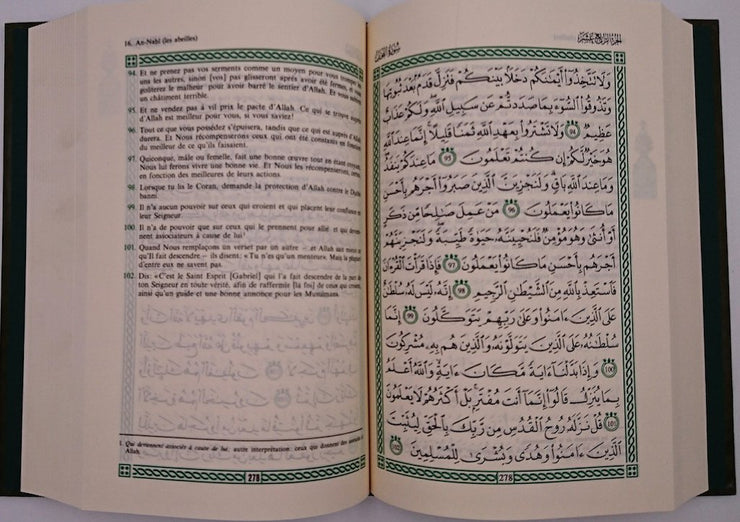 16. An-Nahl (les abeilles)
94. Et ne prenez pas vos serments comme un moyen pour vous tromper
les uns les autres, sinon [vos] pas glisseront après avoir été fermes, et vous
goûterez le malheur pour avoir barré le sentier d'Allah. Et vous subirez
un châtiment terrible.
95. Et ne vendez pas à vil prix le pacte d'Allah. Ce qui se trouve auprès
d'Allah est meilleur pour vous, si vous saviez!
96. Tout ce que vous possédez s'épuisera, tandis que ce qui est auprès d'Allah
durera. Et Nous récompenserons ceux qui ont été constants en fonction
du meilleur de ce qu'ils faisaient.
97. Quiconque, mâle ou femelle, fait une bonne œuvre tout en étant croyant,
Nous lui ferons vivre une bonne vie. Et Nous les récompenserons, certes,
en fonction des meilleures de leurs actions.
98. Lorsque tu lis le Coran, demande la protection d'Allah contre le Diable
banni.
99. Il n'a aucun pouvoir sur ceux qui croient et qui placent leur confiance en
leur Seigneur.
100. Il n'a de pouvoir que sur ceux qui le prennent pour allié et qui devien-
nent associateurs à cause de lui¹.
101. Quand Nous remplaçons un verset par un autre – et Allah sait mieux ce
qu'Il fait descendre – ils disent: « Tu n'es qu'un menteur». Mais la plupart
d'entre eux ne savent pas.
102. Dis: «C'est le Saint Esprit [Gabriel] qui l'a fait descendre de la part de
ton Seigneur en toute vérité, afin de raffermir [la foi] de ceux qui croient,
ainsi qu'un guide et une bonne annonce pour les Musulmans.
1. Qui deviennent associés à cause de lui: autre interprétation: ceux qui donnent des associés à
Allah.
278
الجزء الرابع عشر
سورة النحل
وَلَا تَتَّخِذُوٓا۟ أَيْمَٰنَكُمْ دَخَلًۢا بَيْنَكُمْ فَتَزِلَّ قَدَمٌۢ بَعْدَ ثُبُوتِهَا
وَتَذُوقُوا۟ ٱلسُّوٓءَ بِمَا صَدَدتُّمْ عَن سَبِيلِ ٱللَّهِ وَلَكُمْ عَذَابٌ
عَظِيمٌ ٩٤ وَلَا تَشْتَرُوا۟ بِعَهْدِ ٱللَّهِ ثَمَنًا قَلِيلًا إِنَّمَا عِندَ ٱللَّهِ
هُوَ خَيْرٌ لَّكُمْ إِن كُنتُمْ تَعْلَمُونَ ٩٥ مَا عِندَكُمْ يَنفَدُ
وَمَا عِندَ ٱللَّهِ بَاقٍ وَلَنَجْزِيَنَّ ٱلَّذِينَ صَبَرُوٓا۟ أَجْرَهُم بِأَحْسَنِ
مَا كَانُوا۟ يَعْمَلُونَ ٩٦ مَنْ عَمِلَ صَٰلِحًا مِّن ذَكَرٍ
أَوْ أُنثَىٰ وَهُوَ مُؤْمِنٌ فَلَنُحْيِيَنَّهُۥ حَيَوٰةً طَيِّبَةً وَلَنَجْزِيَنَّهُمْ
أَجْرَهُم بِأَحْسَنِ مَا كَانُوا۟ يَعْمَلُونَ ٩٧ فَإِذَا قَرَأْتَ ٱلْقُرْءَانَ
فَٱسْتَعِذْ بِٱللَّهِ مِنَ ٱلشَّيْطَٰنِ ٱلرَّجِيمِ ٩٨ إِنَّهُۥ لَيْسَ لَهُۥ سُلْطَٰنٌ
عَلَى ٱلَّذِينَ ءَامَنُوا۟ وَعَلَىٰ رَبِّهِمْ يَتَوَكَّلُونَ ٩٩ إِنَّمَا
سُلْطَٰنُهُۥ عَلَى ٱلَّذِينَ يَتَوَلَّوْنَهُۥ وَٱلَّذِينَ هُم بِهِۦ مُشْرِكُونَ
١٠٠ وَإِذَا بَدَّلْنَآ ءَايَةً مَّكَانَ ءَايَةٍ وَٱللَّهُ أَعْلَمُ
بِمَا يُنَزِّلُ قَالُوٓا۟ إِنَّمَآ أَنتَ مُفْتَرٍۭ بَلْ أَكْثَرُهُمْ لَا يَعْلَمُونَ
١٠١ قُلْ نَزَّلَهُۥ رُوحُ ٱلْقُدُسِ مِن رَّبِّكَ بِٱلْحَقِّ لِيُثَبِّتَ
ٱلَّذِينَ ءَامَنُوا۟ وَهُدًى وَبُشْرَىٰ لِلْمُسْلِمِينَ ١٠٢
278